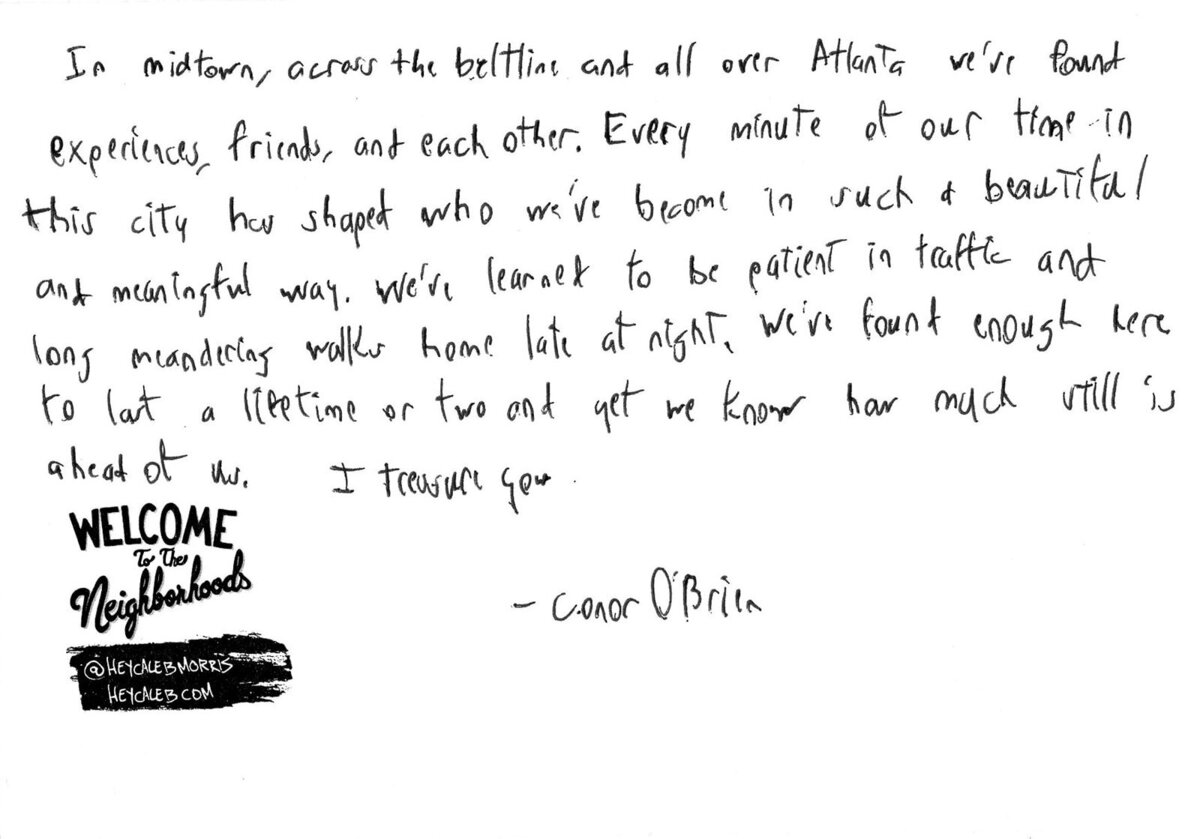 In midtown, across the beltline and all over Atlanta we've found
experiences, friends, and each other. Every minute of our time in
this city has shaped who we've become in such a beautiful
and meaningful way. We've learned to be patient in traffic and
long meandering walks home late at night. We've found enough here
to last a lifetime or two and yet we know how much still is
ahead of us. I treasure you.
- Conor O'Brien
WELCOME
To The
Neighborhoods
@HEYCALEBMORRIS
HEYCALEB.COM